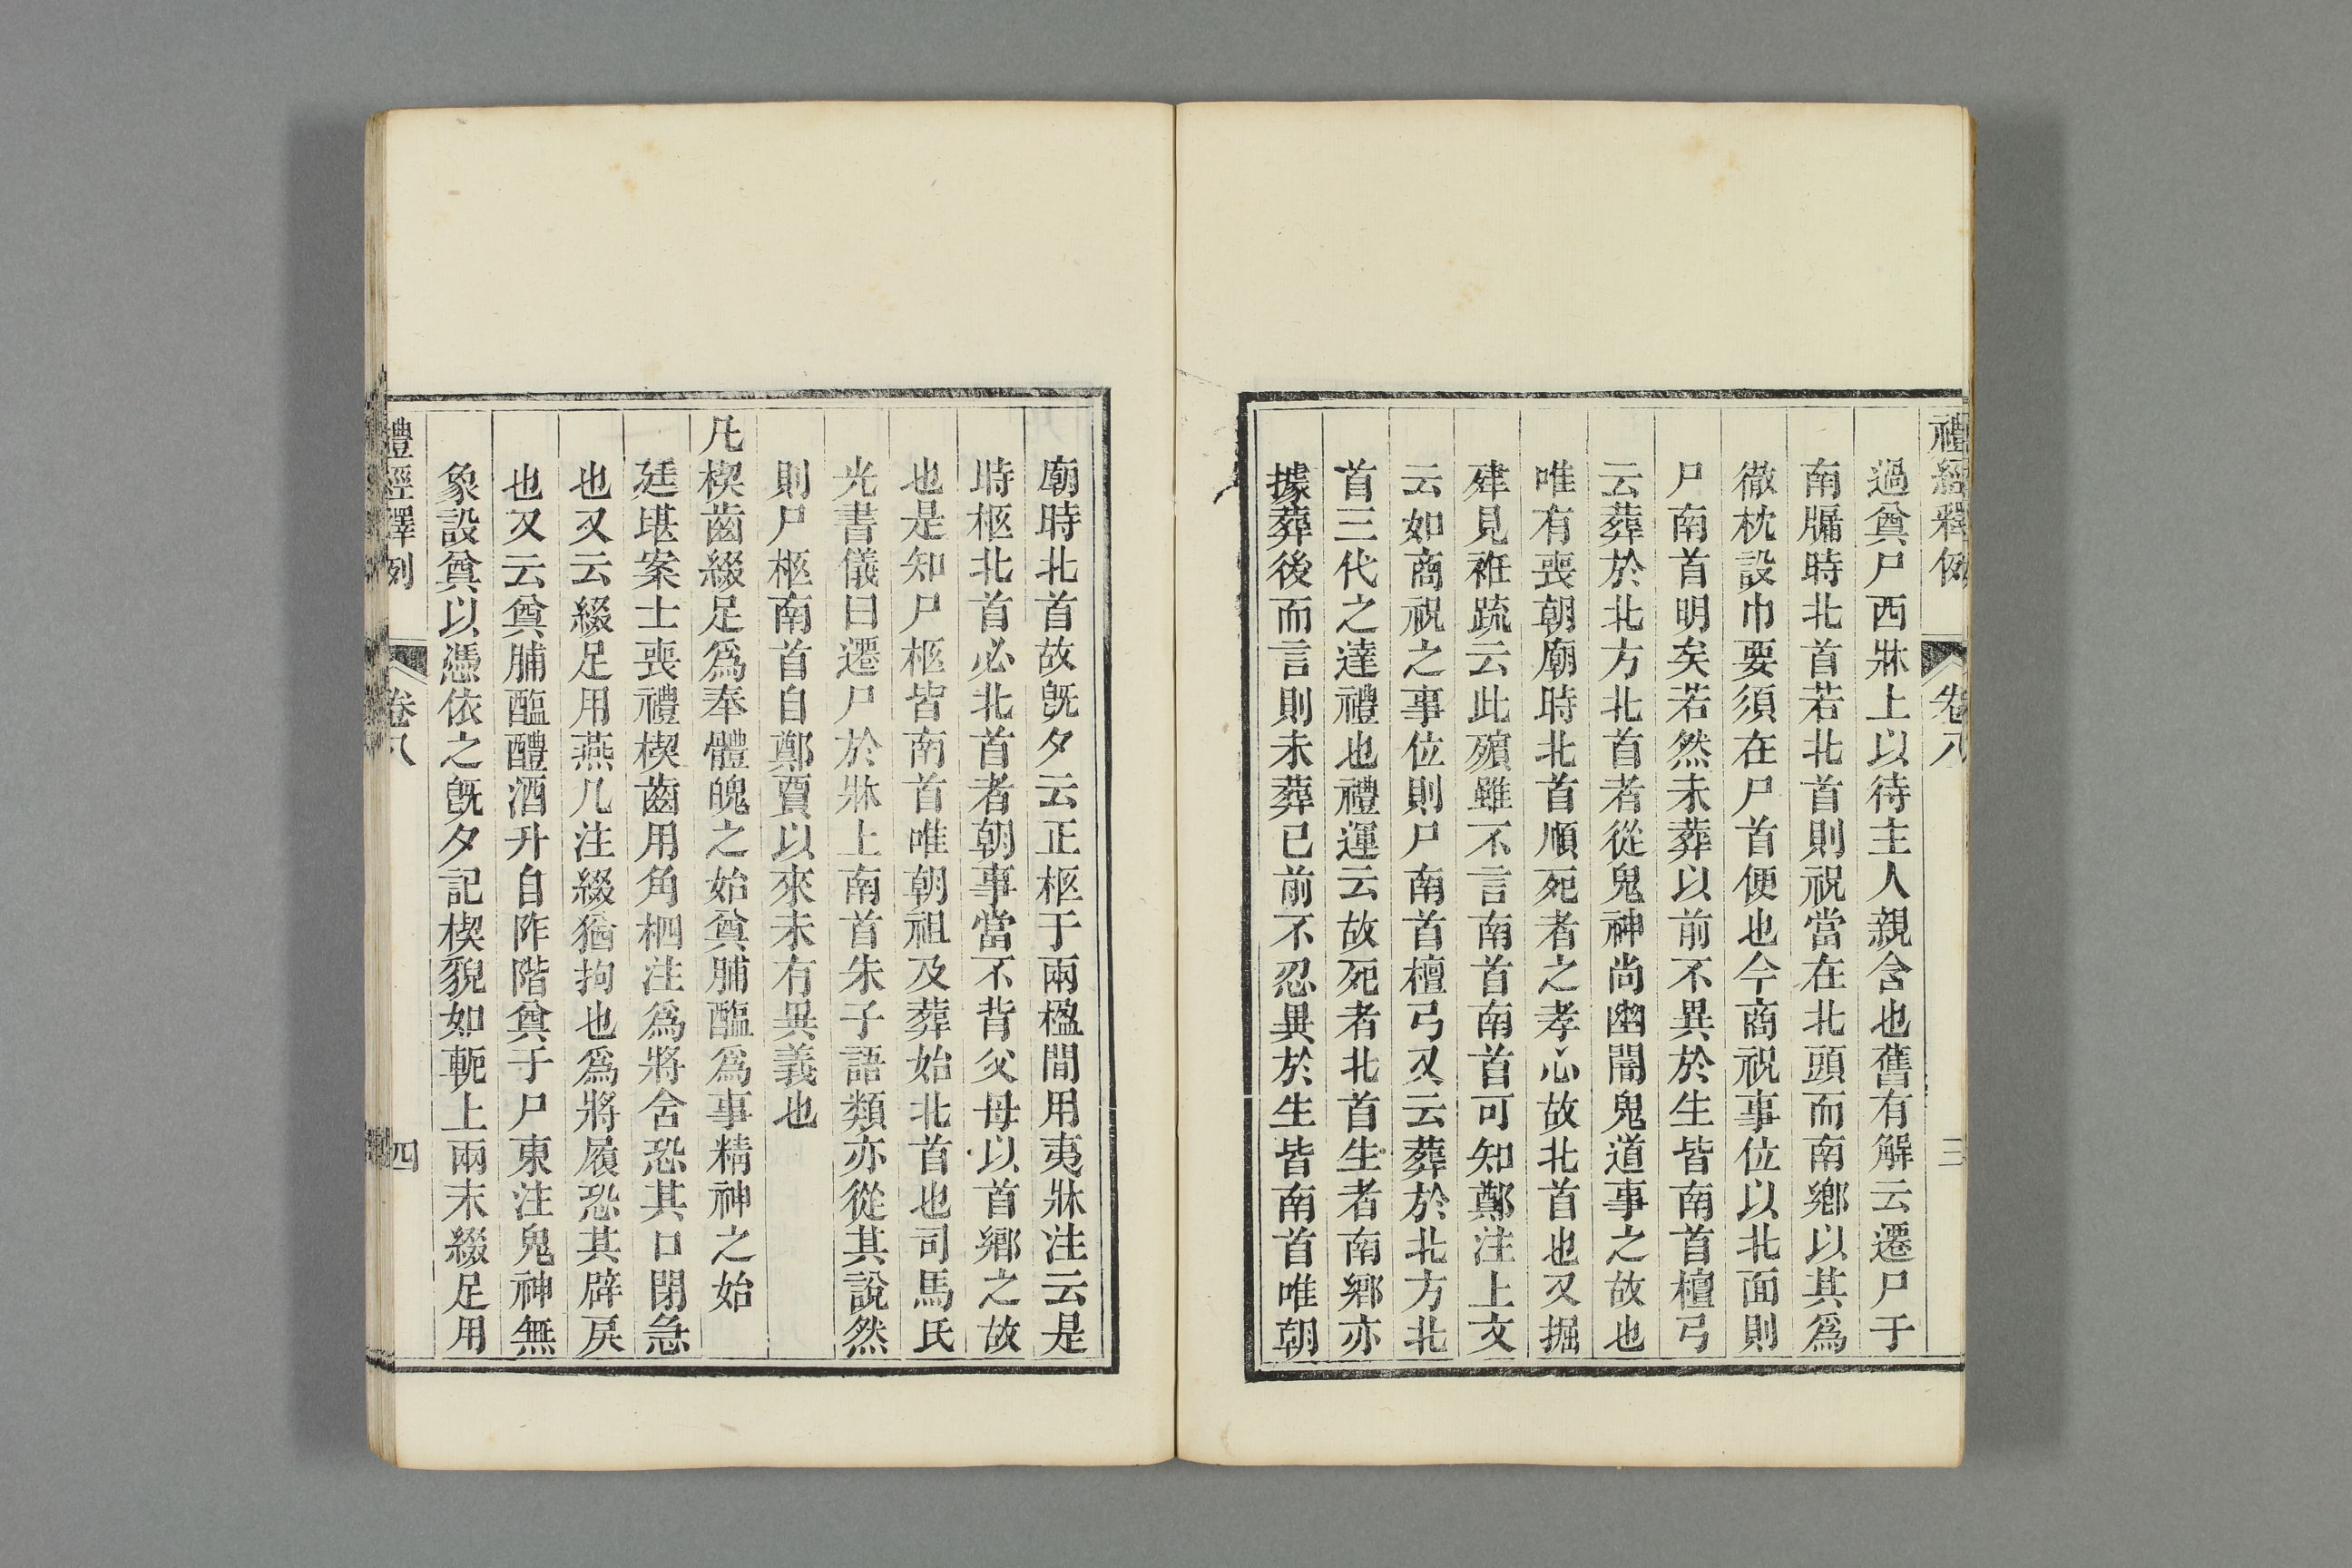 禮經釋例 卷八 三
過奠尸西牀上以待主人親含也舊有解云遷尸于
南牖時北首若北首則祝當在北頭而南鄉以其爲
徹枕設巾要須在尸首便也今商祝事位以北面則
尸南首明矣若然未葬以前不異於生皆南首檀弓
云葬於北方北首者從鬼神尚幽闇鬼道事之故也
唯有喪朝廟時北首順死者之孝心故北首也又掘
肂見衽疏云此殯雖不言南首南首可知鄭注上文
云如商祝之事位則尸南首檀弓又云葬於北方北
首三代之達禮也禮運云故死者北首生者南鄉亦
據葬後而言則未葬已前不忍異於生皆南首唯朝
廟時北首故旣夕云正柩于兩楹間用夷牀注云是
時柩北首必北首者朝事當不背父母以首鄉之故
也是知尸柩皆南首唯朝祖及葬始北首也司馬氏
光書儀曰遷尸於牀上南首朱子語類亦從其說然
則尸柩南首自鄭賈以來未有異義也
凡楔齒綴足爲奉體魄之始奠脯醢爲事精神之始
廷堪案士喪禮楔齒用角柶注爲將含恐其口閉急
也又云綴足用燕几注綴猶拘也爲將屨恐其辟戾
也又云奠脯醢醴酒升自阼階奠于尸東注鬼神無
象設奠以憑依之旣夕記楔貌如軛上兩末綴足用
禮經釋例 卷八 四